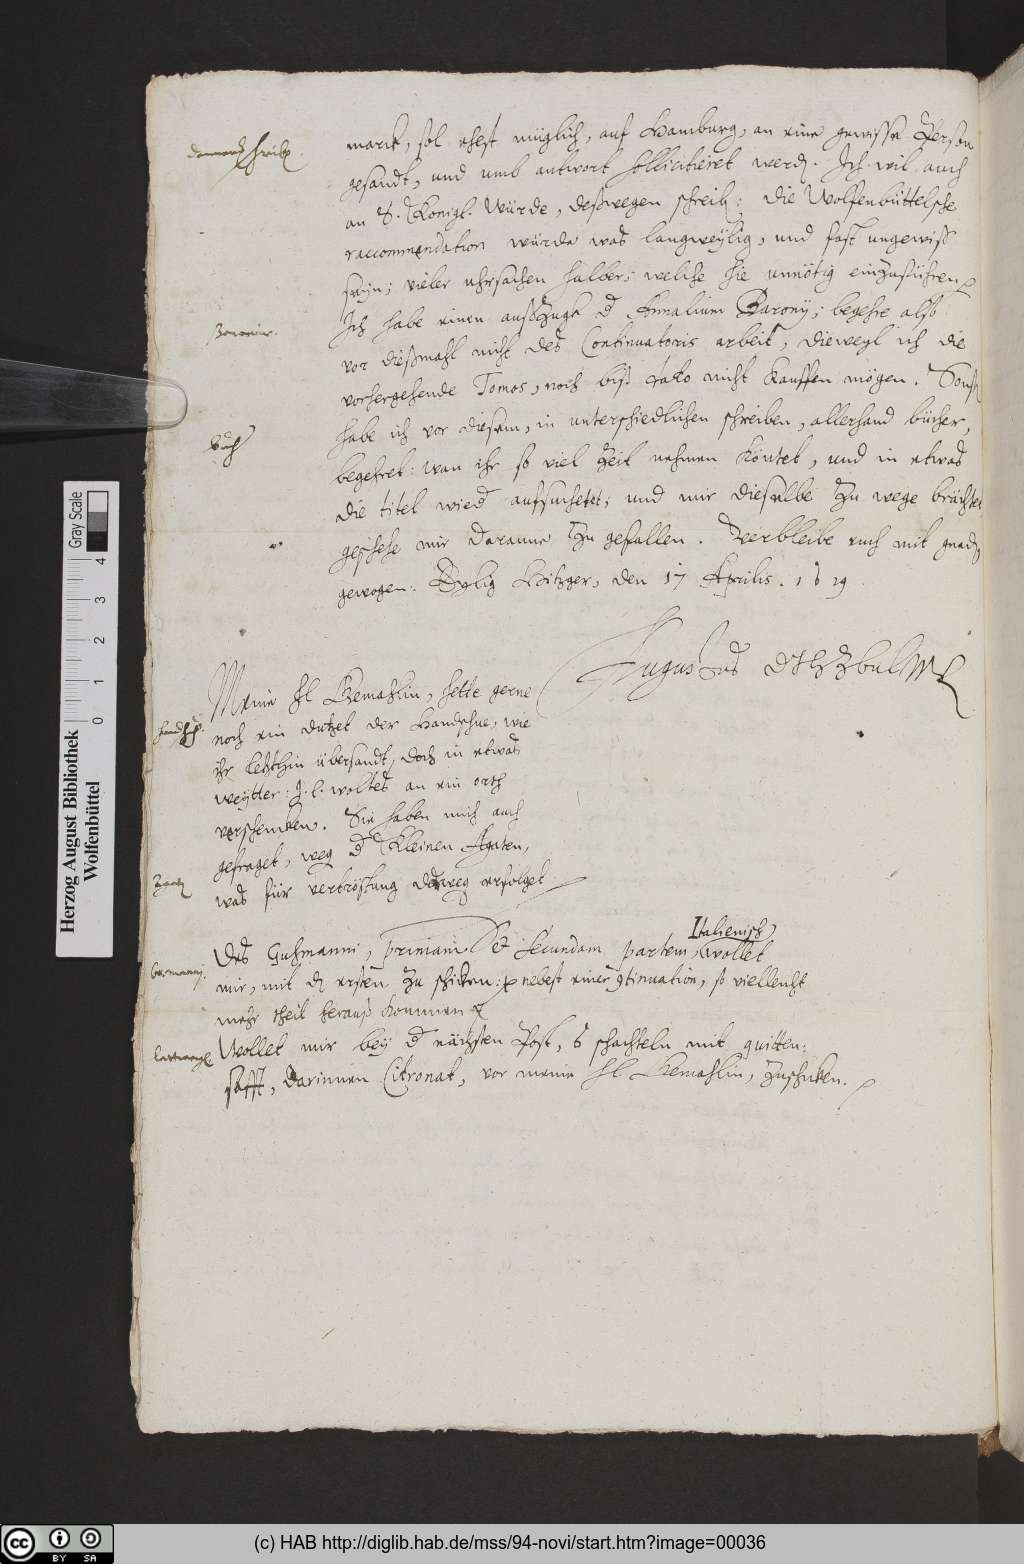 marck, sol ehest müglich, auf Hamburg, an eine gewisse Person
gesandt, und umb antwort sollicitieret werd. Ich wil auch
an S. Königl. Würde, deßwegen schreib: die Wolfenbüttelsche
raccommendation würde was langweylig, und fast ungewiß
seyn; vieler uhrsachen halber, welche hie unnötig einzuführen
Ich habe einen außzugk d Annalium Baronij; begehre alß
vor dießmahl nicht des Continuatoris arbeit, dieweyl ich die
vorhergehende Tomos, noch biß dato nicht kauffen mögen. Sonst
habe ich vor diesem, in unterschiedlichen schreiben, allerhand bücher,
begehret: wan ihr so viel Zeit nehmen köntet, und in etwas
die titel wied aufsuchetet; und mir dieselbe zu wege brächtet
geschehe mir daranne zu gefallen. Verbleibe euch mit gnad
gewogen. Hitzger, den 17 Aprilis. 1629
Augustus
Meine hl Gemahlin, hette gerne
noch ein dutzet der Handschue, wie
ihr letzthin übersandt, doch in etwas
weytter: I. l. woltes an ein orth
verschencken. Sie haben mich auch
gefraget, weg d kleinen Agaten,
was für vertröstung deßweg erfolget
Handsch
Des Gusmanni, primam et secundam partem, Italienisch, wollet
mir, mit d ersten zu schicken: nebest einer continuation, so viellencht
mehr theil herauß kommen
Wollet mir bey d nächsten Post, 6 schachteln mit quitten:
safft, darinnen Citronat, vor meine hl Gemahlin, zuschicken.
Herzog August Bibliothek
Wolfenbüttel
0 1 2 3 4
Gray Scale
cc BY SA
(c) HAB http://diglib.hab.de/mss/94-novi/start.htm?image=00036